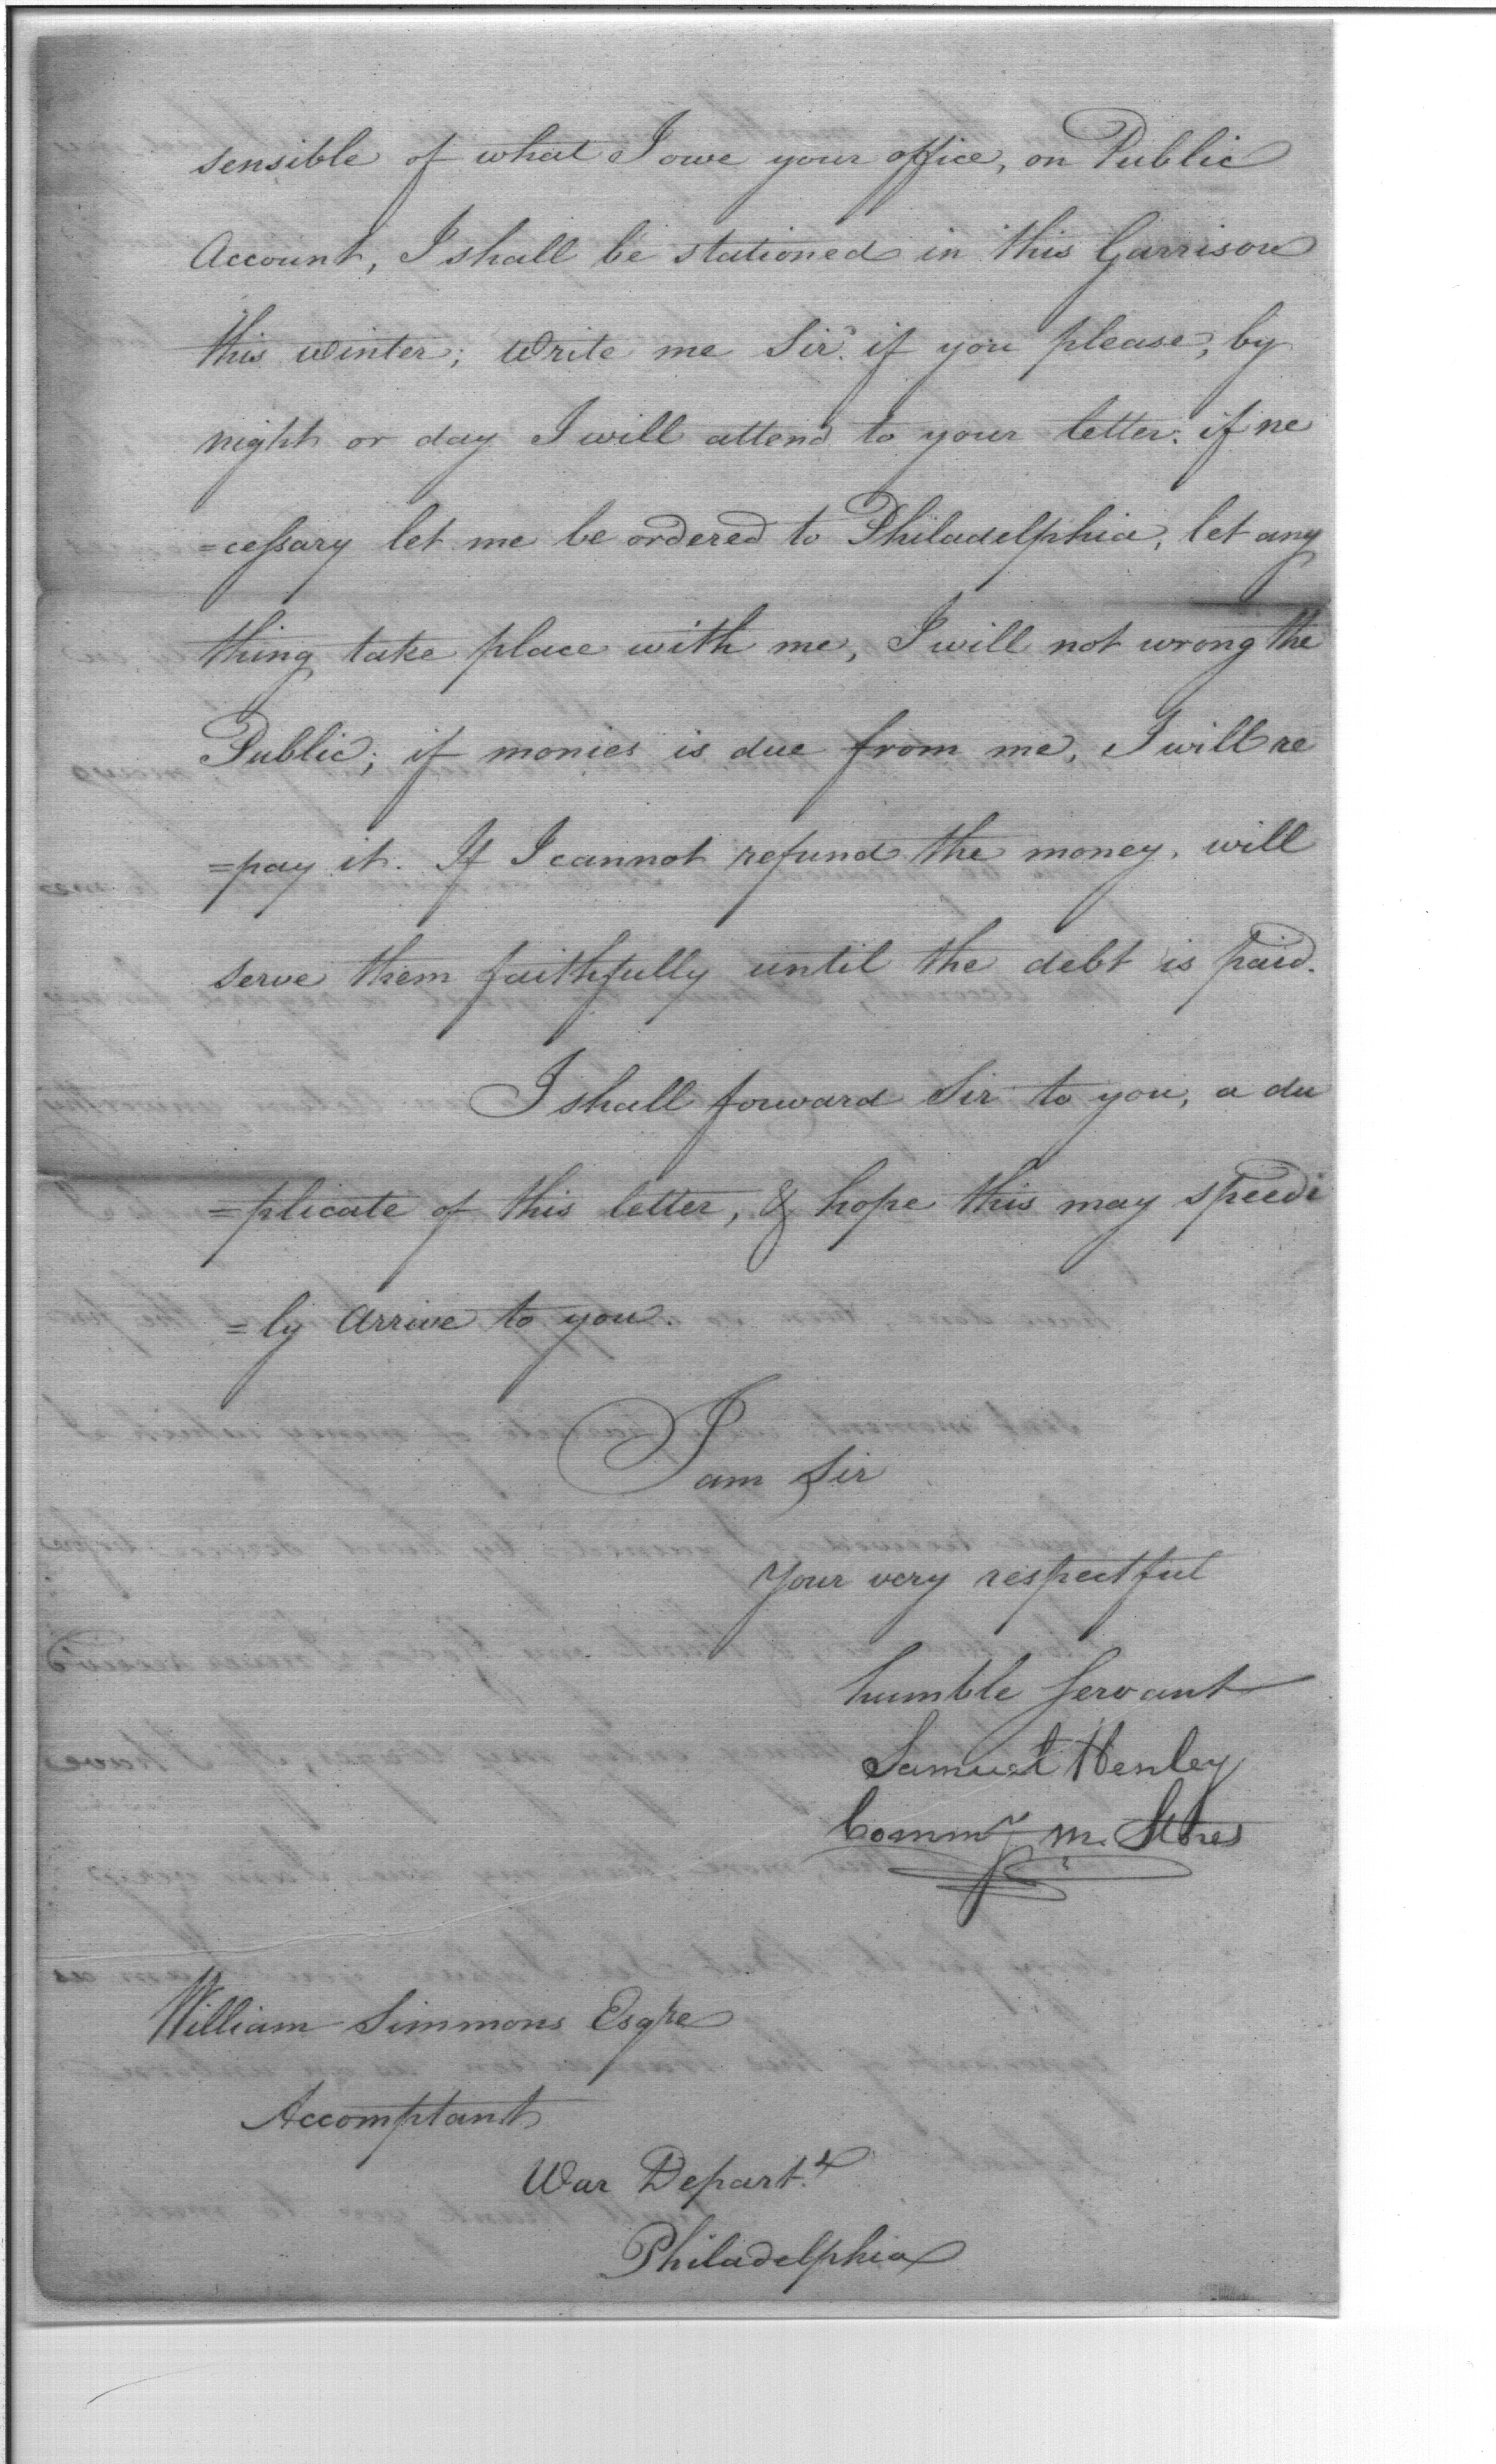 sensible of what I owe your office, on Public
Account, I shall be stationed in this Garrison
this winter; Write me Sir. if you please, by
night or day I will attend to your letter. if ne
=cessary let me be ordered to Philadelphia, let any
thing take place with me, I will not wrong the
Public; if monies is due from me, I will re
=pay it. If I cannot refund the money, will
serve them faithfully until the debt is paid.
I shall forward Sir to you, a du
=plicate of this letter, & hope this may speedi
=ly arrive to you.
I am Sir
Your very respectful
humble Servant
Samuel Henley
Commy. M. Stores
William Simmons Esqre
Accomptant
War Depart.t
Philadelphia